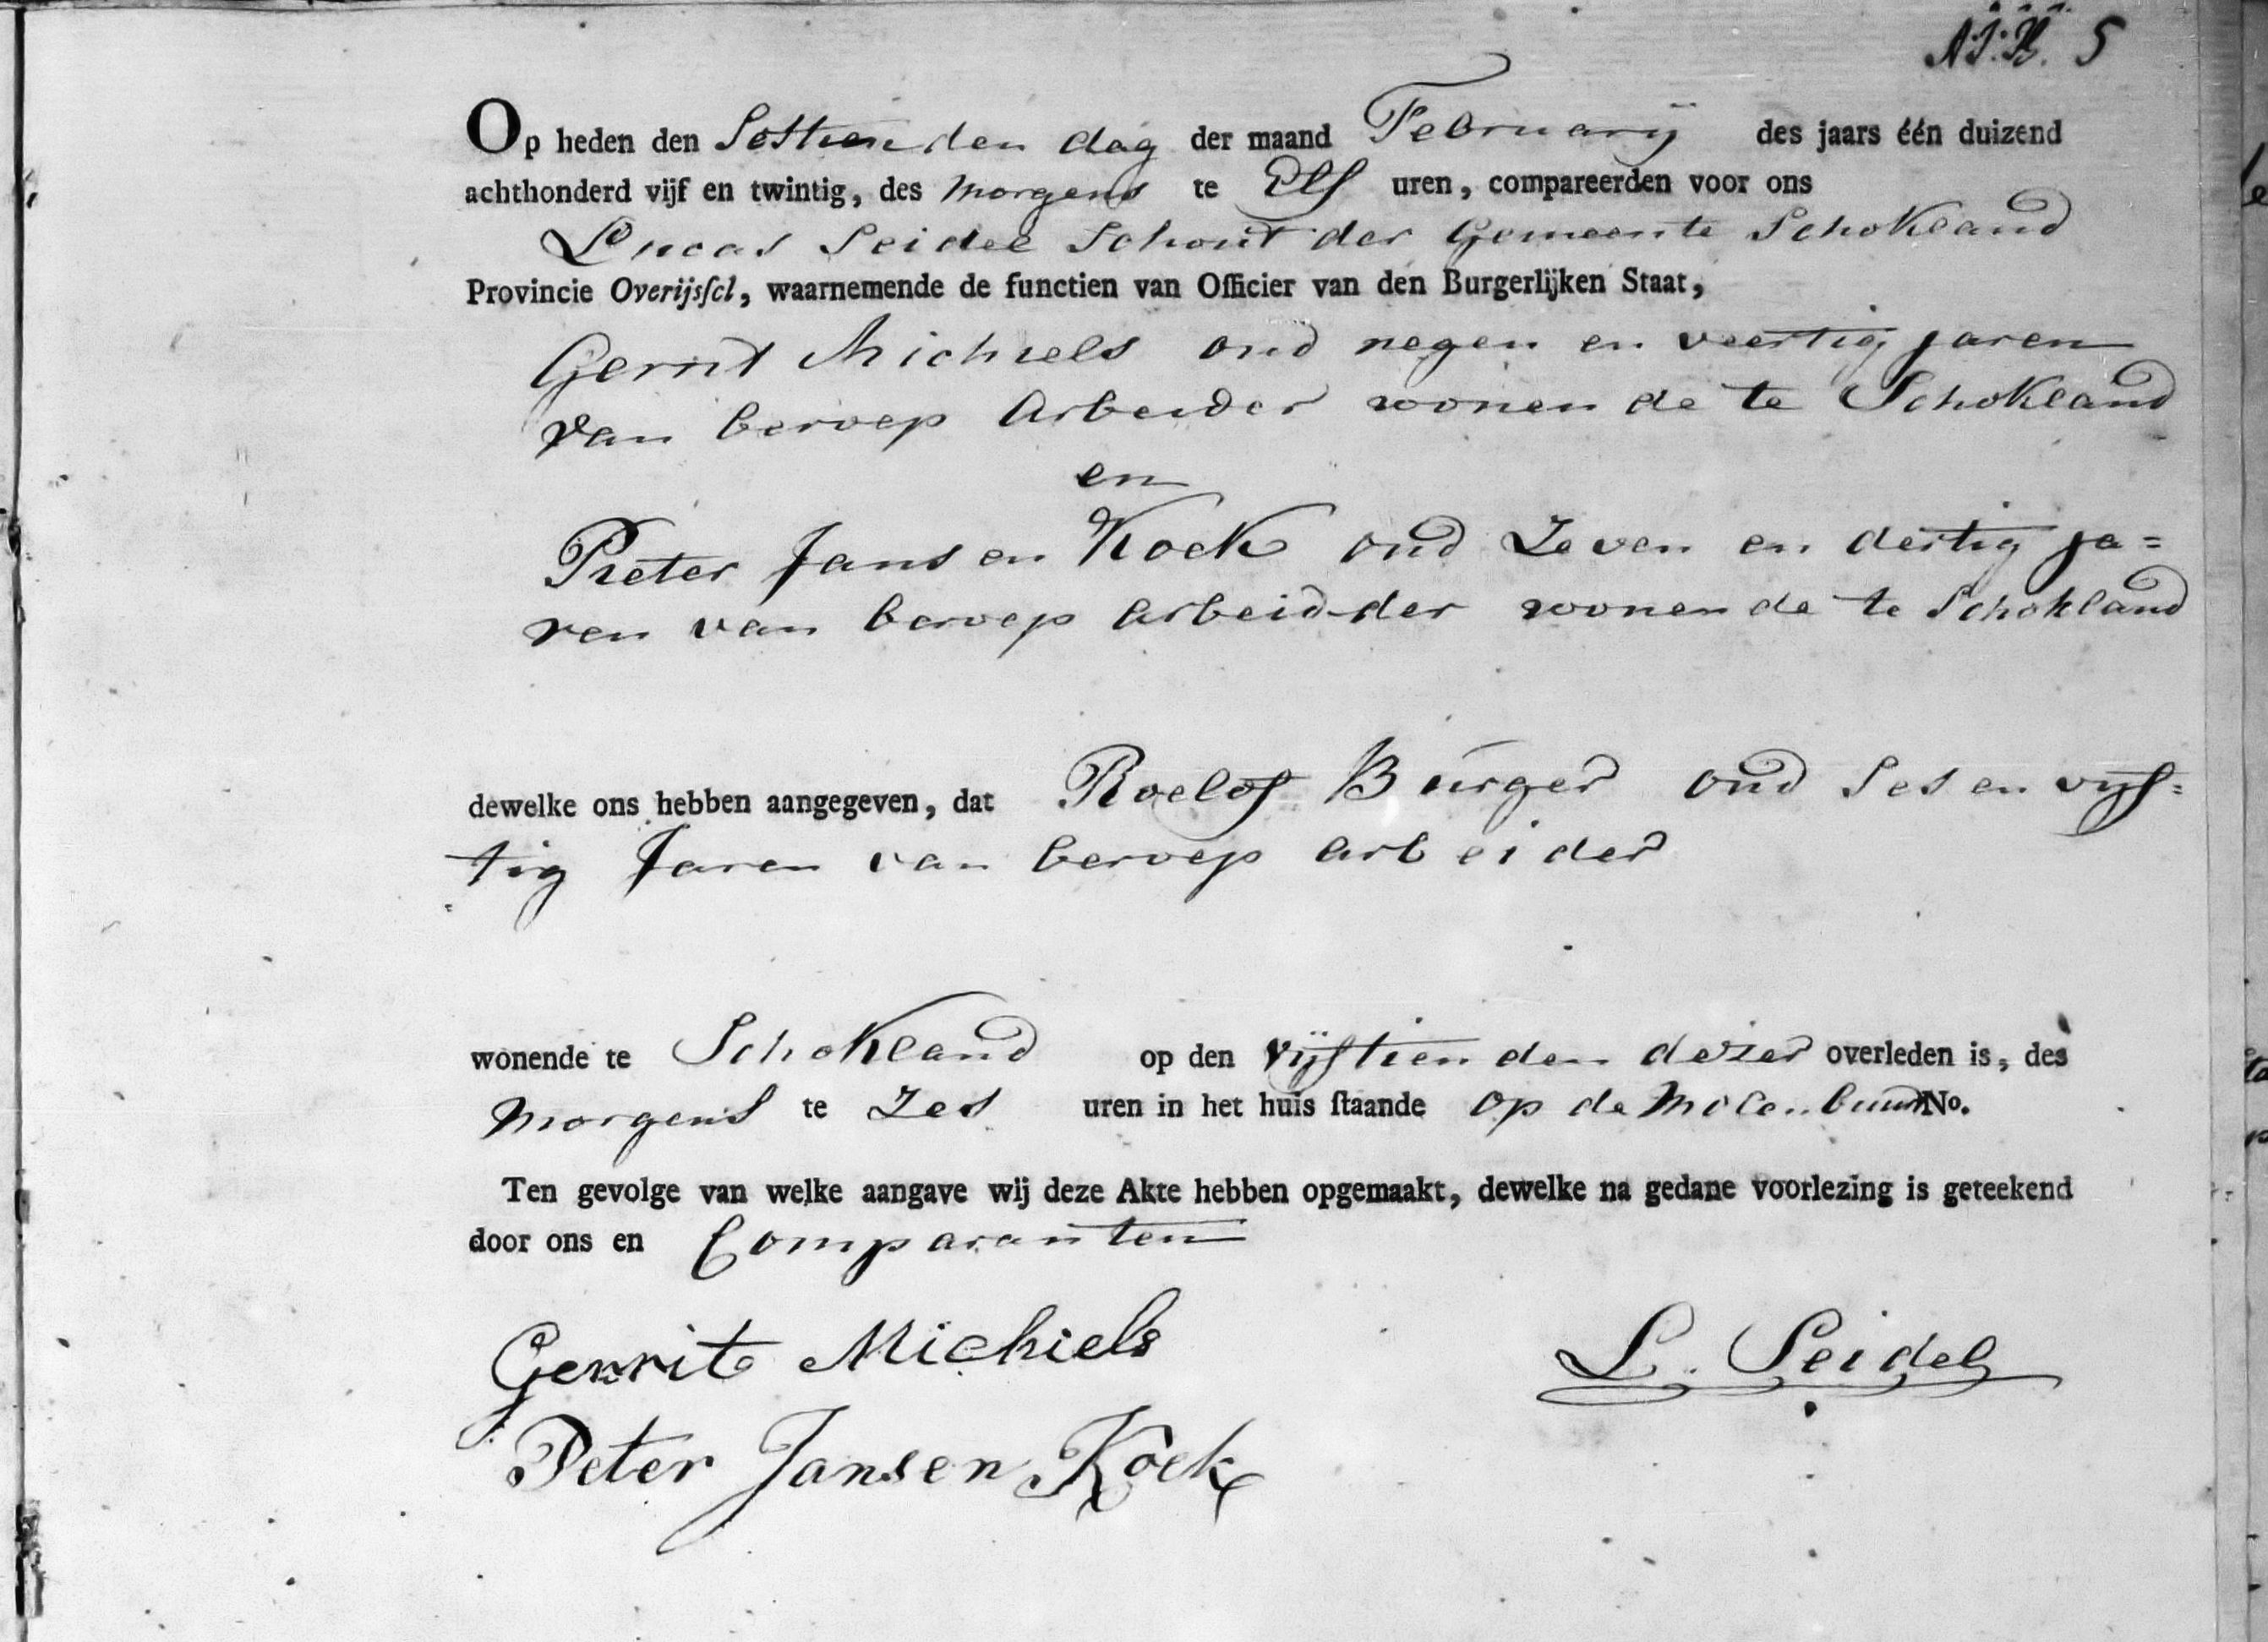 5
Op heden den Sestienden dag der maand February des jaars één duizend
achthonderd vijf en twintig, des morgens te Elf uren, compareerden voor ons
Lucas Seidel Schout der Gemeente Schokland
Provincie Overijsſel, waarnemende de functien van Officier van den Burgerlijken Staat,
Gerrit Michiels oud negen en veertig jaren
van beroep Arbeider wonende te Schokland
en
Pieter Jansen Koek oud Zeven en dertig ja=
ren van beroep arbeidder wonende te Schokland
dewelke ons hebben aangegeven, dat Roelof Burger oud Ses en vijf=
tig Jaren van beroep arbeider
wonende te Schokland op den vijftienden dezer overleden is, des
morgens te Zes uren in het huis ſtaande op de Molenbuurt No.
Ten gevolge van welke aangave wij deze Akte hebben opgemaakt, dewelke na gedane voorlezing is geteekend
door ons en Comparanten
Gerrit Michiels
L. Seidel
Peter Jansen Koek